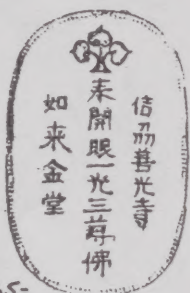 信刕善光寺
来開眼一光三尊佛
如来金堂